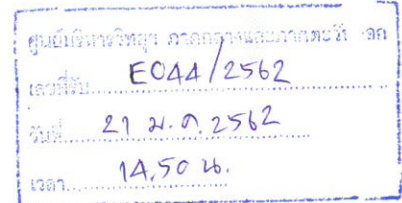 ศูนย์บริหารวิทยุฯ ภาคกลางและภาคตะวัน ตก
เลขที่รับ E044/2562
วันที่ 21 ม.ค. 2562
เวลา 14.50 น.